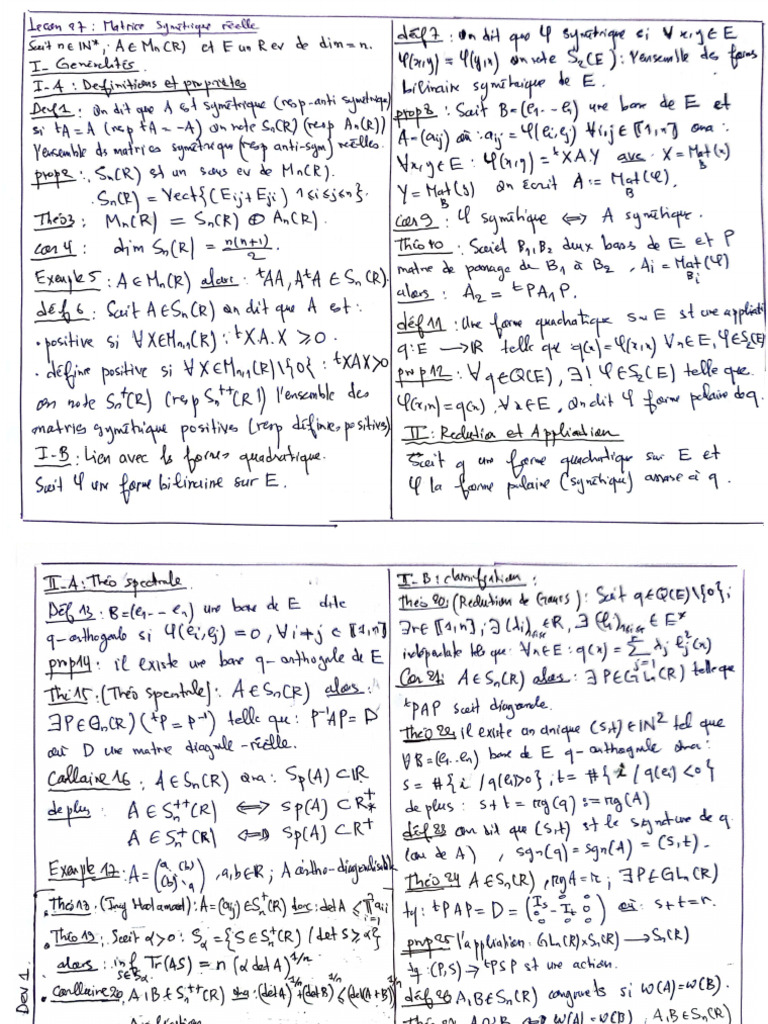 Leçon 27 : Matrice Symétrique réelle
Soit n ∈ IN*, A ∈ Mn(R) et E un R ev de dim = n.
I - Généralités
I - A : Definitions et proprietes
Def 1 : on dit que A est symétrique (resp-anti symétrique)
si tA = A (resp tA = -A) on note Sn(R) (resp An(R))
l'ensemble ds matrices symétrique (resp anti-sym) réelles.
prop 2 : Sn(R) est un sous ev de Mn(R).
Sn(R) = Vect{(Eij + Eji) 1≤i≤j≤n}.
Théo 3 : Mn(R) = Sn(R) ⊕ An(R).
cor 4 : dim Sn(R) = n(n+1)/2
Exemple 5 : A ∈ Mn(R) alors : tAA, AtA ∈ Sn(R).
déf 6 : Soit A ∈ Sn(R) on dit que A est :
• positive si ∀X∈Mn,1(R) : tXA.X ≥ 0.
• définie positive si ∀X∈Mn,1(R)\{0} : tXAX>0
on note Sn+(R) (resp Sn++(R)) l'ensemble des
matrices symétrique positives (resp définies positives)
I-B : Lien avec ls formes quadratique.
Soit φ une forme bilinéaire sur E.
déf 7 : on dit que φ symétrique si ∀x,y∈E
φ(x,y) = φ(y,x) on note S2(E) : l'ensemble des forms
bilinéaire symétrique de E.
prop 8 : Soit B=(e1 -- en) une base de E et
A=(aij) où : aij = φ(ei,ej) ∀i,j∈[[1,n]] ona :
∀x,y∈E : φ(x,y) = tXAY avec X = Mat_B(x)
Y = Mat_B(y) on écrit A := Mat_B(φ).
cor 9 : φ symétrique ⇔ A symétique.
Théo 10 : Soient B1, B2 deux bass de E et P
matrice de passage de B1 à B2, Ai = Mat_Bi(φ)
alors : A2 = tPA1P.
déf 11 : Une forme quadratique sur E st une applicati
q : E → IR telle que q(x) = φ(x,x) ∀x∈E, φ∈S2(E)
prop 12 : ∀q∈Q(E), ∃! φ∈S2(E) telle que
φ(x,x) = q(x), ∀x∈E, on dit φ forme polaire de q.
II : Reduction et Application
Soit q une forme quadratique sur E et
φ la forme polaire (symétrique) associe à q.
II-A : Théo spectrale
Déf 13 : B=(e1 -- en) une base de E dite
q-orthogonale si φ(ei,ej) = 0, ∀i≠j ∈ [[1,n]]
prop 14 : il existe une base q-orthogonale de E
Thé 15 : (Théo spectrale) : A∈Sn(R) alors :
∃P∈Gn(R) (tP = P-1) telle que : P-1AP = D
où D une matrice diagonale-réelle.
Corollaire 16 : A∈Sn(R) ona : Sp(A) ⊂ IR
de plus : A ∈ Sn++(R) ⇔ sp(A) ⊂ R+*
A ∈ Sn+(R) ⇔ Sp(A) ⊂ R+
Exemple 17 : A = (a (b) (b) a), a,b∈R ; A ortho-diagonalisable
• Théo 18 : (Ing Hadamard) : A=(aij)∈Sn+(R) alors : det A ≤ ∏ i=1 n aii
• Théo 19 : Soit α>0 : Sα = {S∈Sn+(R) / det S ≥ α}
alors : inf S∈Sα Tr(AS) = n (α det A)1/n
• Corollaire 20 A,B∈Sn++(R) ona : (det A)1/n + (det B)1/n ≤ (det(A+B))1/n
Dev 1.
I-B : classification :
Théo 20 : (Reduction de Gauss) : Soit q∈Q(E)\{0} ;
∃r∈[[1,n]] ; ∃(λi)1≤i≤r ∈ R, ∃(li)1≤i≤r ∈ E*
indépendate tels que : ∀x∈E : q(x) = Σ j=1 r λj lj2(x)
Cor 21 : A∈Sn(R) alors : ∃P∈GLn(R) telle que
tPAP soit diagonale.
Théo 22 : il existe un unique (s,t)∈IN2 tel que
∀B=(e1..en) base de E q-orthogonale ona :
s = #{i / q(ei)>0} ; t = #{i / q(ei)<0}
de plus : s + t = rg(q) := rg(A)
déf 23 on dit que (s,t) st le signature de q
(ou de A), sgn(q) = sgn(A) = (s,t).
Théo 24 A∈Sn(R), rgA = r ; ∃P∈GLn(R)
tq : tPAP = D = (Is 0 0 / 0 -It 0 / 0 0 0) où : s+t=r.
prop 25 l'application : GLn(R)×Sn(R) → Sn(R)
tq : (P,S) ↦ tPSP st une action.
déf 26 A,B∈Sn(R) congruents si W(A)=W(B).